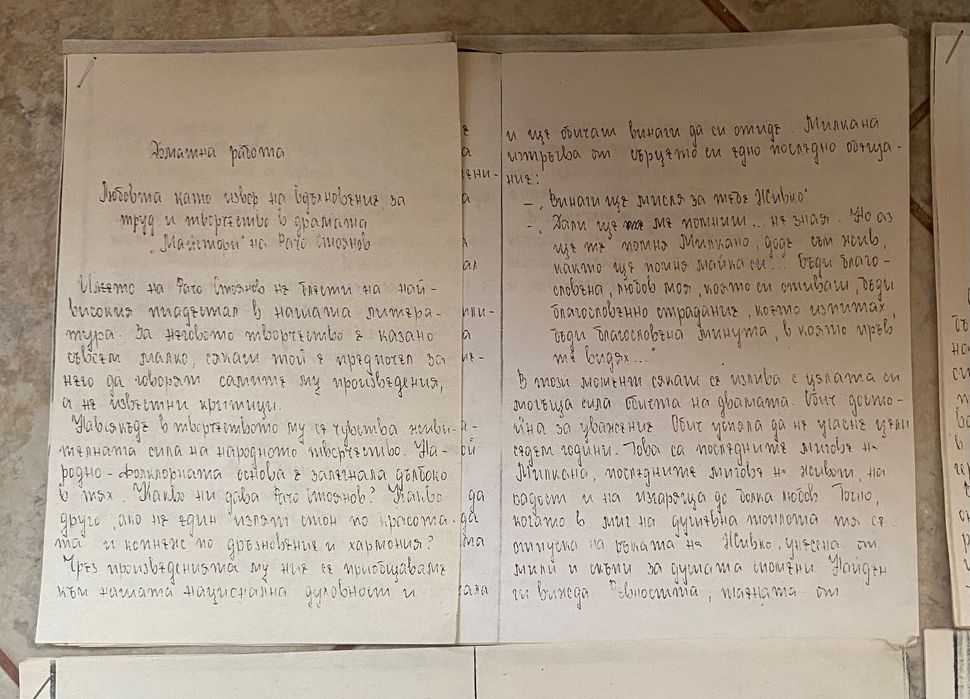 Домашна работа
Любовта като извор на вдъхновение за
труд и творчество в драмата
„Майстори" на Рачо Стоянов
Името на Рачо Стоянов не блести на най-
високия пиадестал в нашата литера-
тура. За неговото творчество е казано
съвсем малко, сякаш той е предпочел за
него да говорят самите му произведения,
а не известни критици.
Навсякъде в творчеството му се чувства живи-
телната сила на народното творчество. На-
родно-фолклорната основа е залегнала дълбоко
в тях. Какво ни дава Рачо Стоянов? Какво
друго, ако не един излят стон по красота-
та и копнеж по дръзновение и хармония?
Чрез произведенията му ние се приобщаваме
към нашата национална духовност и
и ще обичаш винаги да си отиде. Милкана
изтръгва от сърцето си едно последно обеща-
ние:
- „Винаги ще мисля за тебе Живко"
- „Дали ще ме помниш... не зная. Но аз
ще те помня Милкано, доде съм жив,
както ще помня майка си... Бъди благо-
словена, любов моя, която си отиваш, бъди
благословенно страдание, което изпитах
бъди благословена минута, в която пръв
те видях..."
В този момент сякаш се излива с цялата си
могъща сила обичта на драмата. Обич досто-
йна за уважение. Обич успяла да не угасне цели
седем години. Това са последните мигове на
Милкана, последните мигове на живот, на
радост и на изгаряща до болка любов. Точно,
когато в миг на душевна топлота тя се
отпуска на ръката на Живко, унесена от
мили и скъпи за душата спомени Найден
ги вижда. Ревността, пламната от